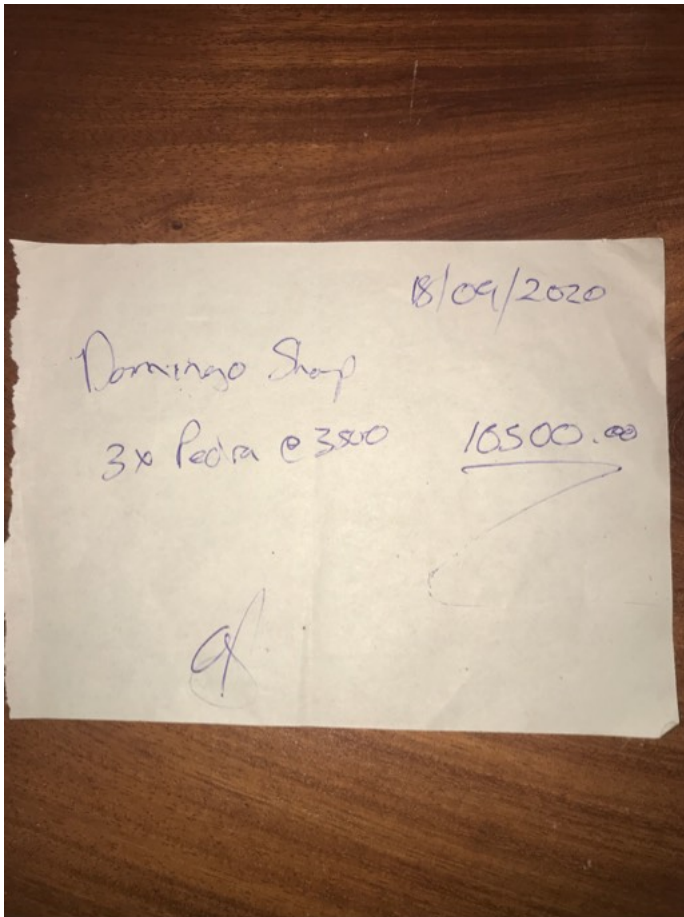 18/09/2020
Domingo Shop
3x Pedra @ 3500 10500.00